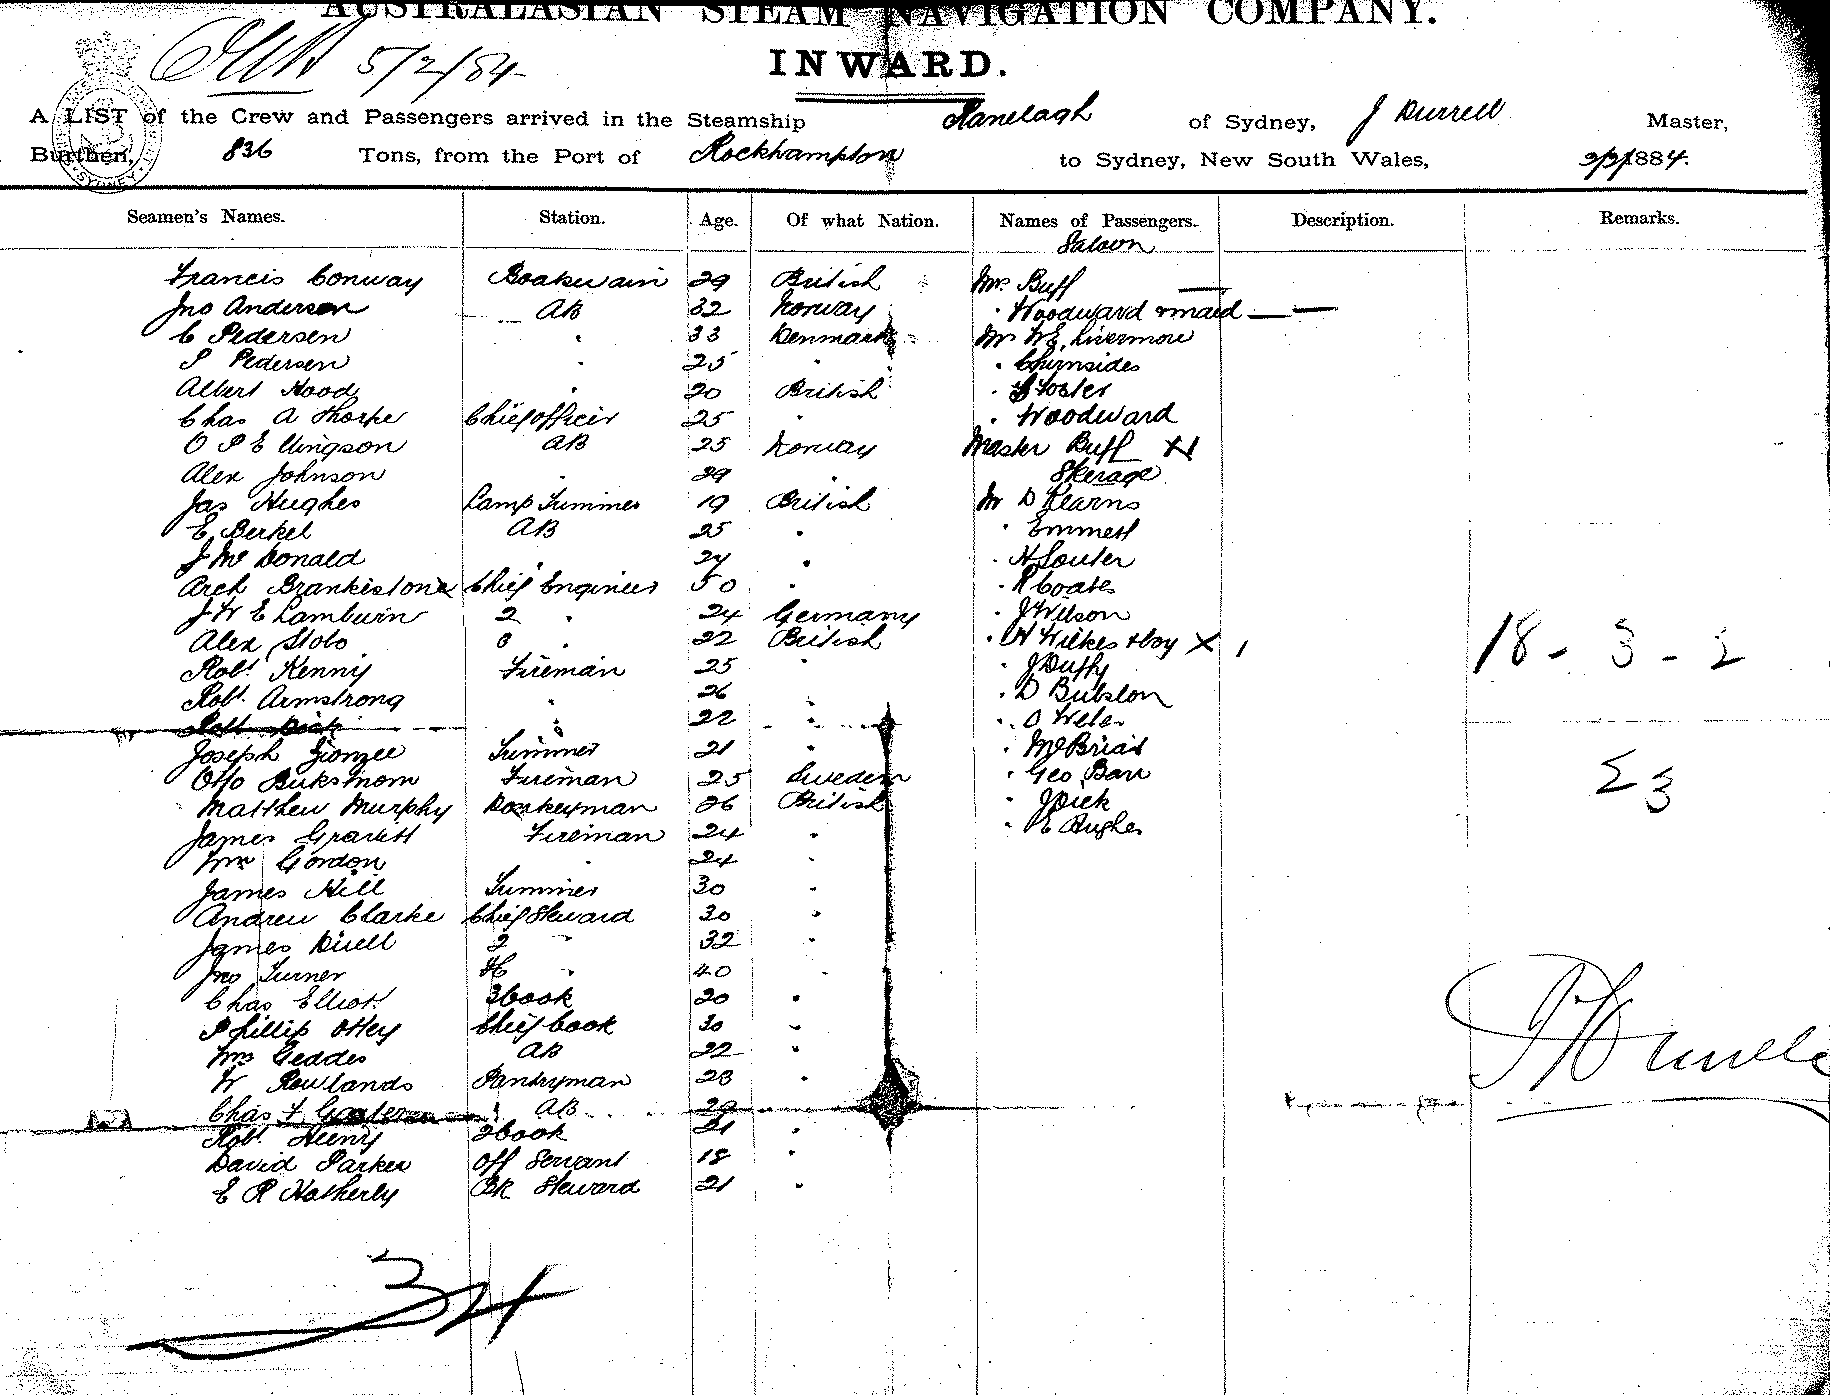 AUSTRALASIAN STEAM NAVIGATION COMPANY.
5/2/84
INWARD.
A LIST of the Crew and Passengers arrived in the Steamship Ranelagh of Sydney, J Burrell Master,
Burthen, 836 Tons, from the Port of Rockhampton to Sydney, New South Wales, 1884.
SYDNEY
Seamen's Names. Station. Age. Of what Nation. Names of Passengers. Description. Remarks.
Saloon
Francis Conway Boatswain 29 British Mrs Buff —
Jno Anderson AB 32 Norway " Woodward & maid — —
C Pedersen " 33 Denmark Mr W E Livermore
P Pedersen " 25 " " Chirnsides
Albert Hood " 20 British " Foster
Chas A Thorpe Chief officer 25 " " Woodward
O P E AB 25 Norway Master Buff
Alex Johnson " 29 " Steerage
Jas Hughes Lamp Trimmer 19 British Mr D Kearns
E Berkel AB 25 " " Emmett
J Mc Donald " 24 " " H Souter
Arch Brankistone Chief Engineer 50 " " R Coates
J W E Lamburn 2 " 24 Germany " J Wilson
Alex 3 " 22 British " H Wilkes & boy X 1 18 - 3 - 2
Robt Kenny Fireman 25 " " J Duffy
Robt Armstrong " 26 " " D
Robt Dick " 22 " "
Joseph Trimmer 21 " "
Otto Fireman 25 Sweden " Geo Barr 23
Matthew Murphy Donkeyman 26 British " J Dick
James Fireman 24 " " E Hughes
Wm Gordon " 24 "
James Hill Trimmer 30 "
Andrew Clarke Chief Steward 30 "
James 2 " 32 "
Jno Turner " 40 "
Chas Elliott 3 Cook 20 "
Phillip Ottey Chief Cook 30 "
Wm Geddes AB 22 "
W Rowlands Pantryman 23 "
Chas F AB 29
Robt Henry 2 Cook 21 "
David Parker Off Servant 18 "
E R Hatherly Steward 21 "
34